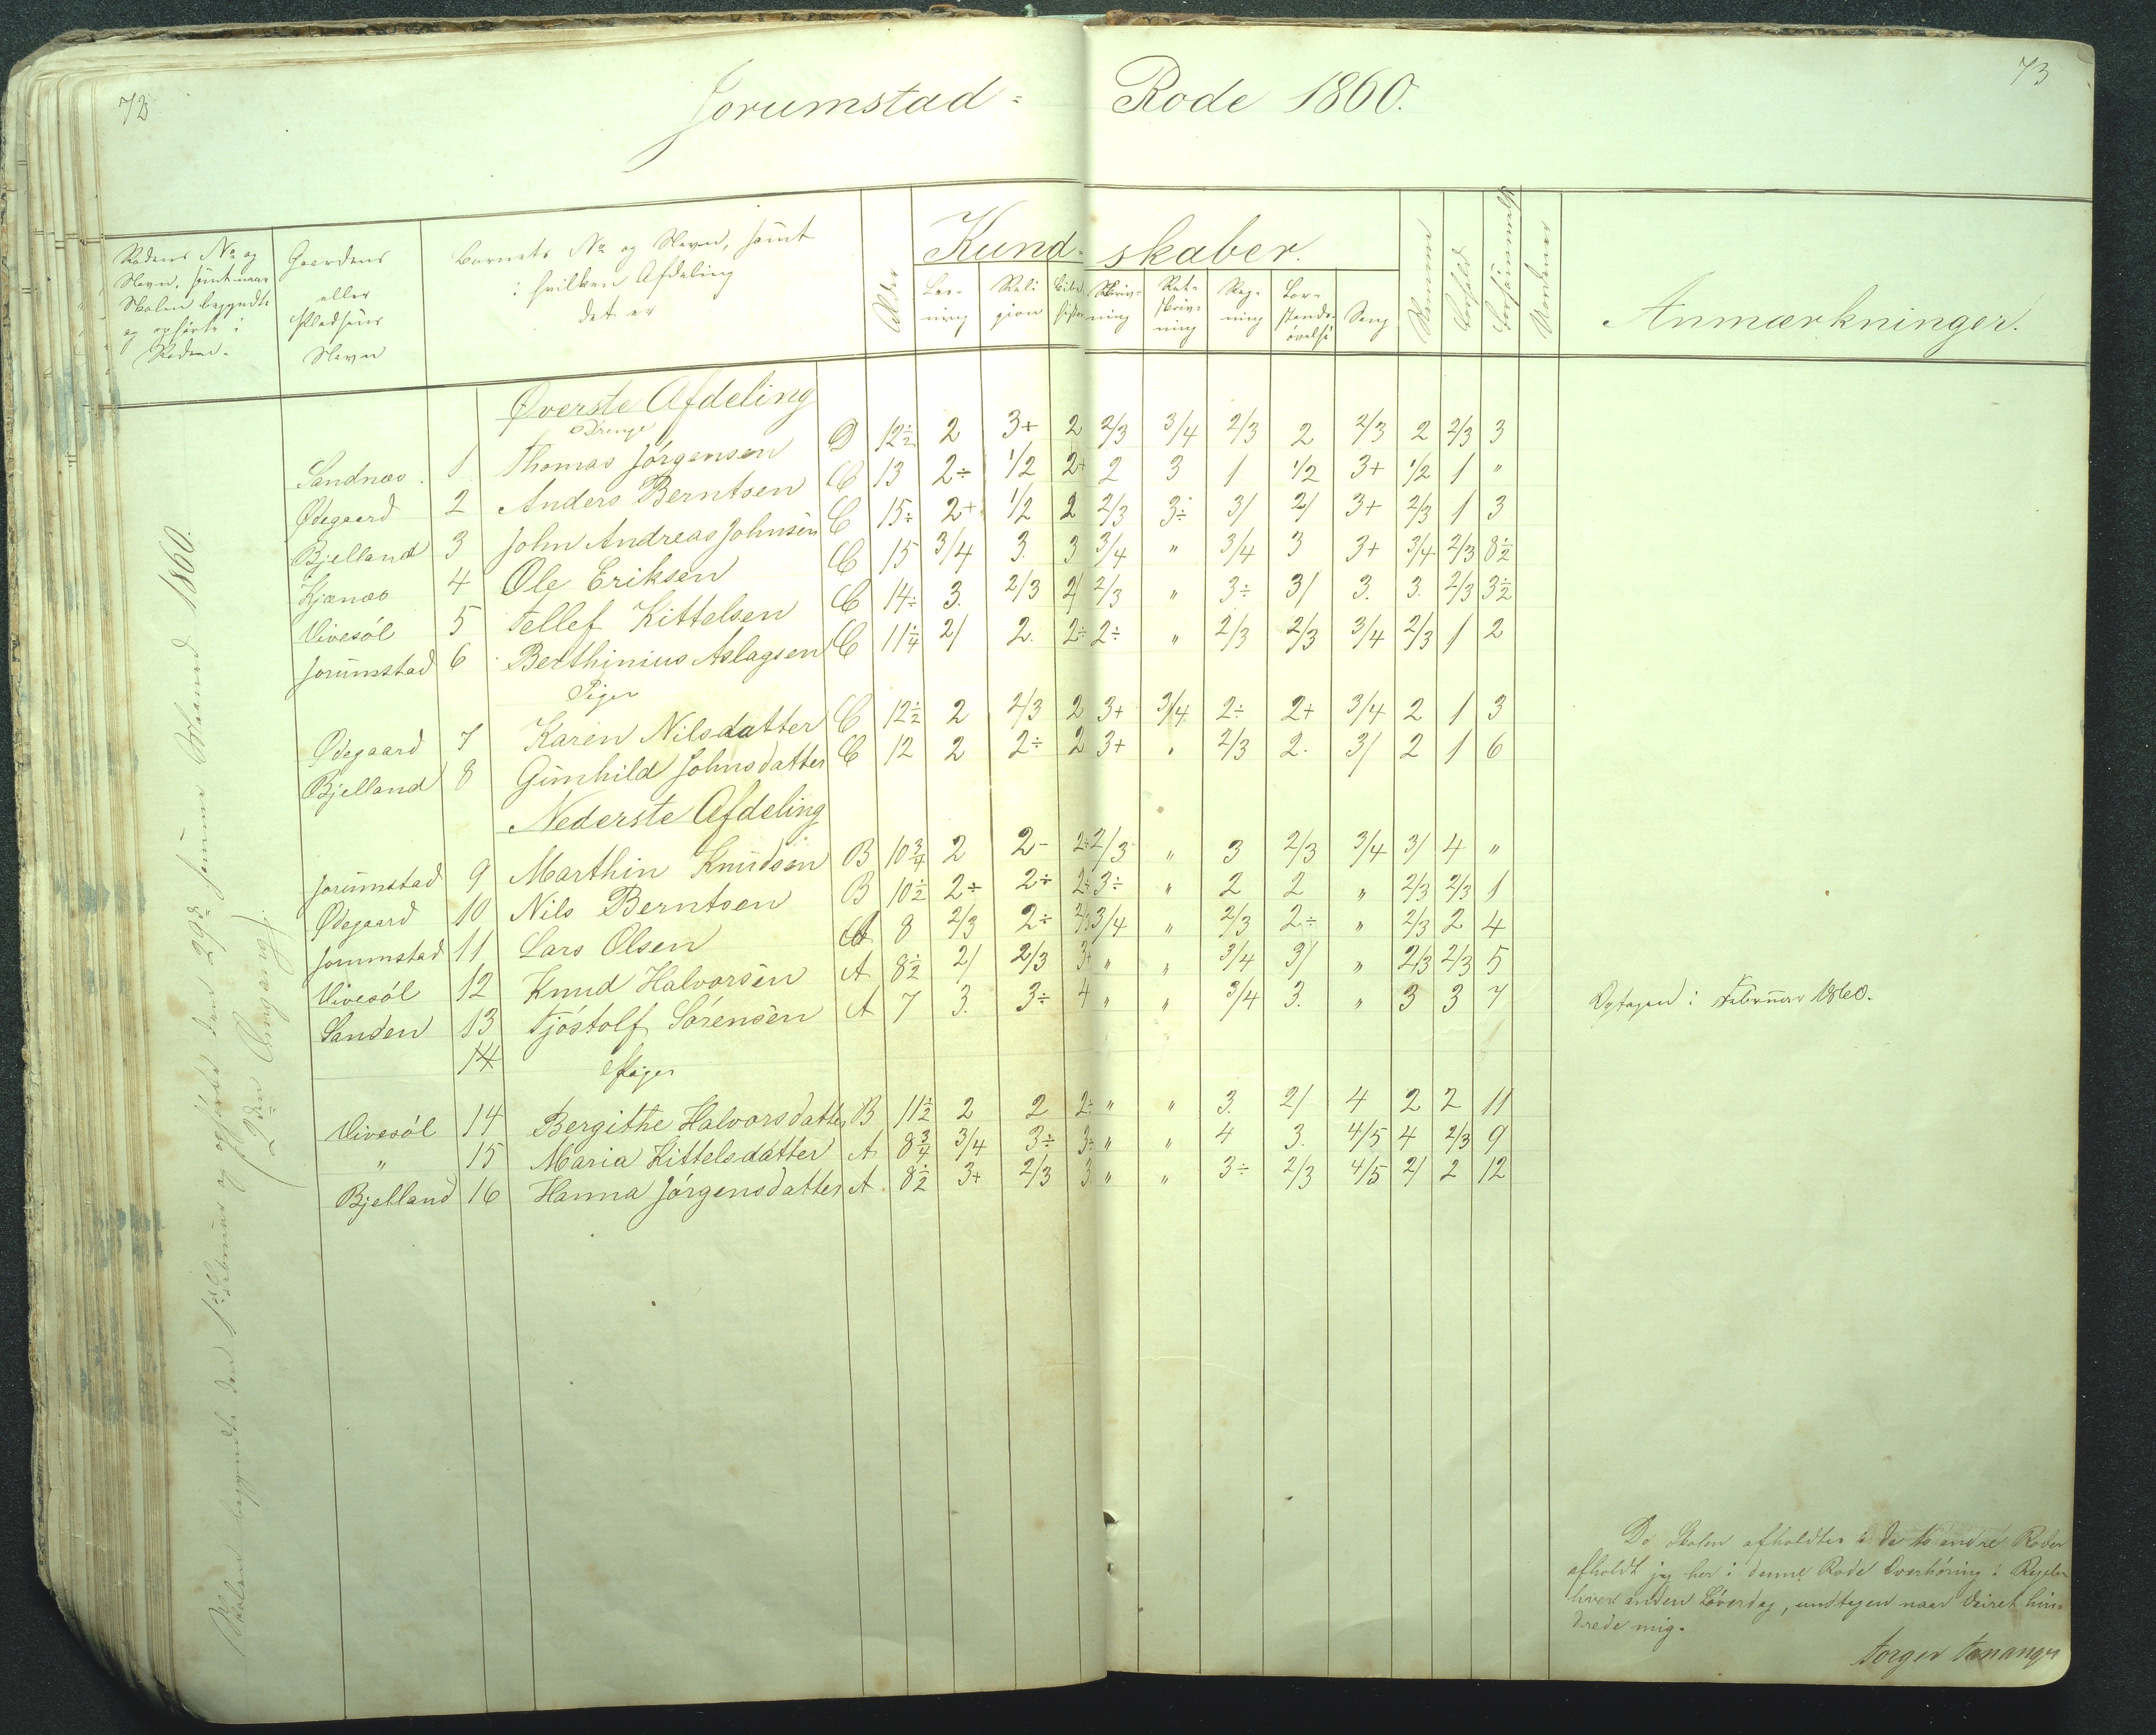 72
73
Jorumstad= Rode 1860.
Rodens No og Navn, samt naar Skolen begyndte og ophørte i Roden.
Gaardens eller Pladsens Navn
Barnets No og Navn, samt i hvilken Afdeling det er
Alder
Kund=skaber.
Læs=ning
Reli=gion
Skriv=ning
Ret=skriv=ning
Reg=ning
For=stands=øvelse
Sang
Nemme
Forhold
Forsømmelse
Anmærkninger.
Skolen begyndte den 1ste Februar og ophørte den 29de samme Maaned 1860.
(2den Omgang).
Øverste Afdeling
Drenge
Sandnæs. 1 Thomas Jørgensen D 12½ 2 3+ 2 2/3 3/4 2/3 2 2/3 2 2/3 3
Ødegaard 2 Anders Berntsen C 13 2÷ 1/2 2+ 2 3 1 1/2 3+ 1/2 1 "
Bjelland 3 John Andreas Johnsen C 15÷ 2+ 1/2 2 2/3 3÷ 3/ 2/ 3+ 2/3 1 3
Kjænæs 4 Ole Eriksen C 15 3/4 3. 3 3/4 " 3/4 3 3+ 3/4 2/3 8½
Vivesöl 5 Tellef Kittelsen C 14÷ 3. 2/3 2/ 2/3 " 3÷ 3/ 3. 3. 2/3 3½
Jorumstad 6 Berthinius Aslagsen C 11¼ 2/ 2. 2÷ 2÷ " 2/3 2/3 3/4 2/3 1 2
Piger
Ødegaard 7 Karen Nilsdatter C 12½ 2 2/3 2 3+ 3/4 2÷ 2+ 3/4 2 1 3
Bjelland 8 Gunhild Johnsdatter C 12 2 2÷ 2 3+ " 2/3 2. 3/ 2 1 6
Nederste Afdeling
Jorumstad 9 Marthin Knudsen B 10¾ 2 2- 2÷ 2/3 " 3 2/3 3/4 3/ 4 "
Ødegaard 10 Nils Berntsen B 10½ 2÷ 2÷ 2÷ 3÷ " 2 2 " 2/3 2/3 1
Jorumstad 11 Lars Olsen A 8 2/3 2÷ 2/3 3/4 " 2/3 2÷ " 2/3 2 4
Vivesöl 12 Knud Halvorsen A 8½ 2/ 2/3 3+ " " 3/4 3/ " 2/3 2/3 5
Sanden 13 Tjöstolf Sörensen A 7 3. 3÷ 4 " " 3/4 3. " 3 3 7 Optagen i Februar 1860.
14
Piger
Vivesöl 14 Bergithe Halvorsdatter B 11½ 2 2 2÷ " " 3. 2/ 4 2 2 11
" 15 Maria Kittelsdatter A 8¾ 3/4 3÷ 3÷ " " 4 3. 4/5 4 2/3 9
Bjelland 16 Hanna Jørgensdatter A 8½ 3+ 2/3 3 " " 3÷ 2/3 4/5 2/ 2 12
Da Skolen afholdtes i de to andre Roder
afholdt jeg her i denne Rode Overhöring i Regelen
hver anden Löverdag, undtagen naar Veiret hin=
drede mig.
Torger Tananger